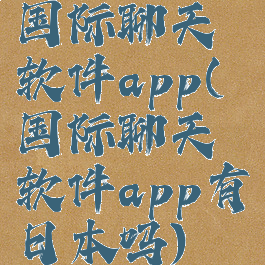 国际聊天
软件app(
国际聊天
软件app有
日本吗)